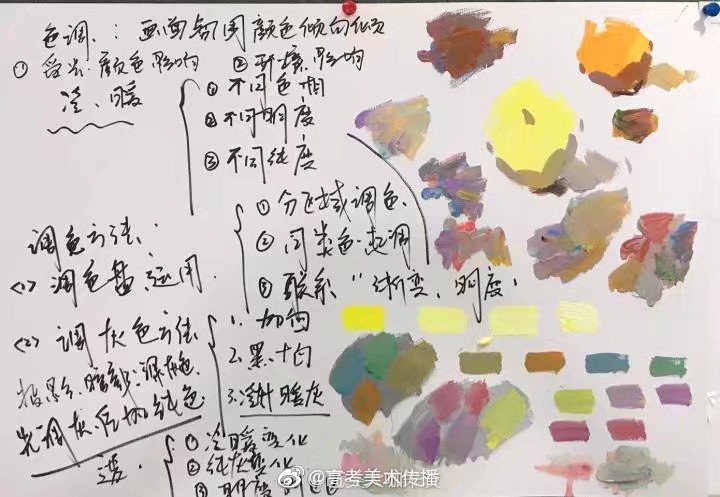 色调：画面氛围颜色倾向
① 受光颜色影响 ② 环境影响
冷、暖
① 不同色相
② 不同明度
③ 不同纯度
调色方法：
① 分区域调色
② 同类色
③ 联系“渐变、明度”
<1> 调色盘运用
<2> 调灰色方法
1. 加白
2. 黑+白
3. 冷暖灰
投影、暗部
先调灰，后加纯色
① 冷暖变化
② 纯灰变化
③ 明度
@高考美术传播